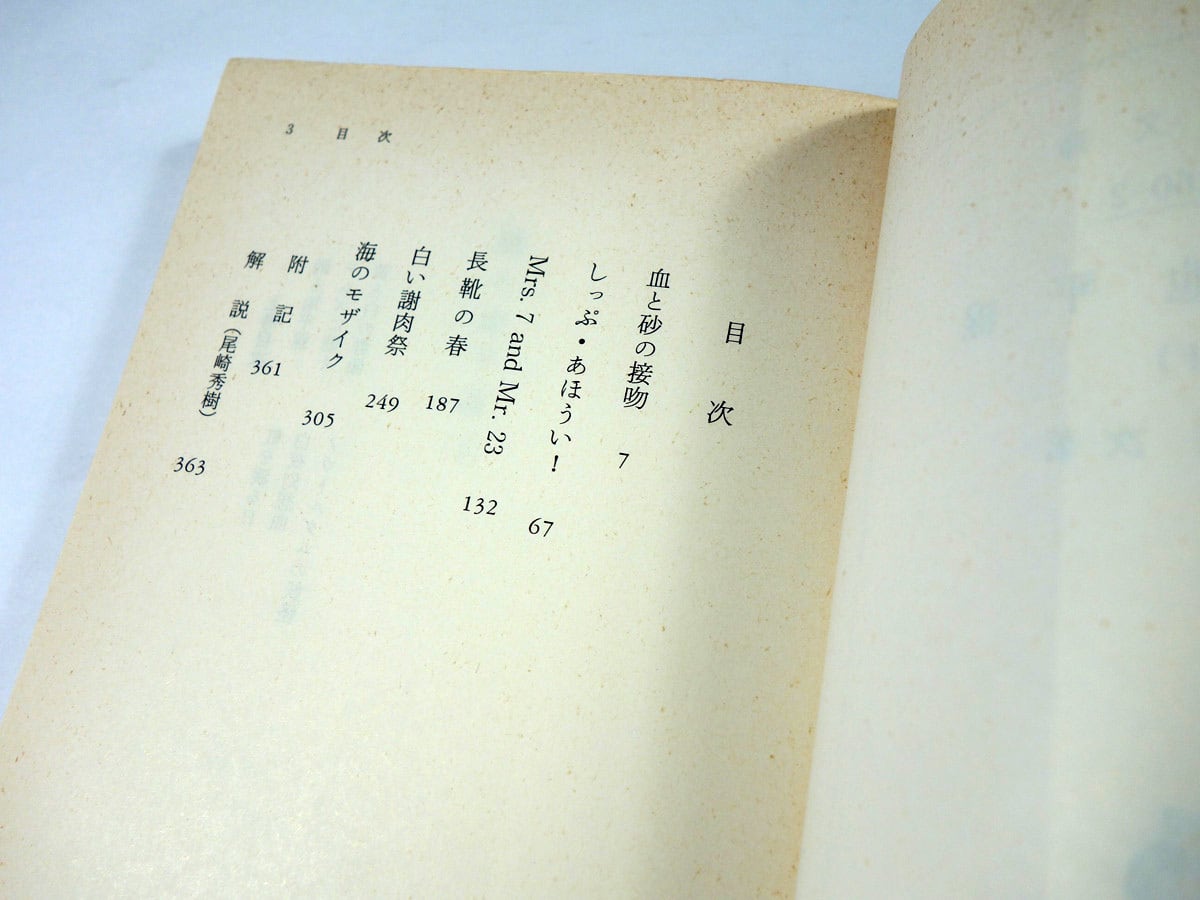 3 目次
目次
血と砂の接吻 7
しっぷ・あほうい！ 67
Mrs. 7 and Mr. 23 132
長靴の春 187
白い謝肉祭 249
海のモザイク 305
附記 361
解説（尾崎秀樹） 363